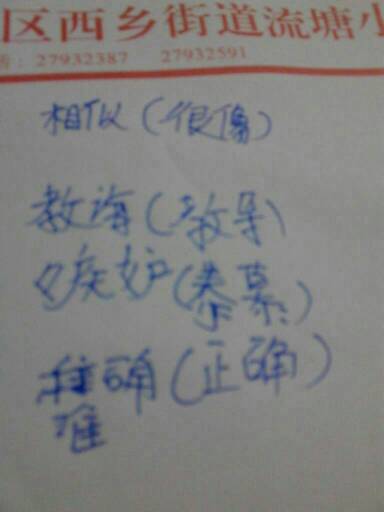 区西乡街道流塘小
: 27932387 27932591
相似（很像）
教诲（教导）
嫉妒（慕）
确（正确）
准